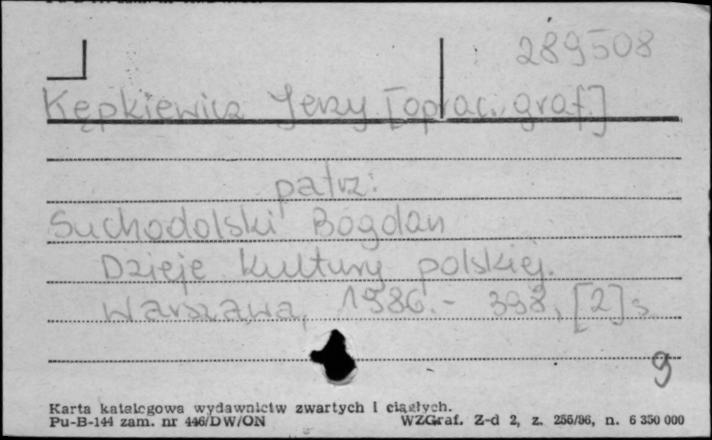 289508
Kępkiewicz Jerzy [oprac. graf.]
patrz:
Suchodolski Bogdan
Dzieje kultury polskiej.
Warszawa, 1986.- 398, [2] s
9
Karta katalogowa wydawnictw zwartych i ciągłych.
Pu-B-144 zam. nr 446/DW/ON WZGraf. Z-d 2, z. 255/86, n. 6 350 000